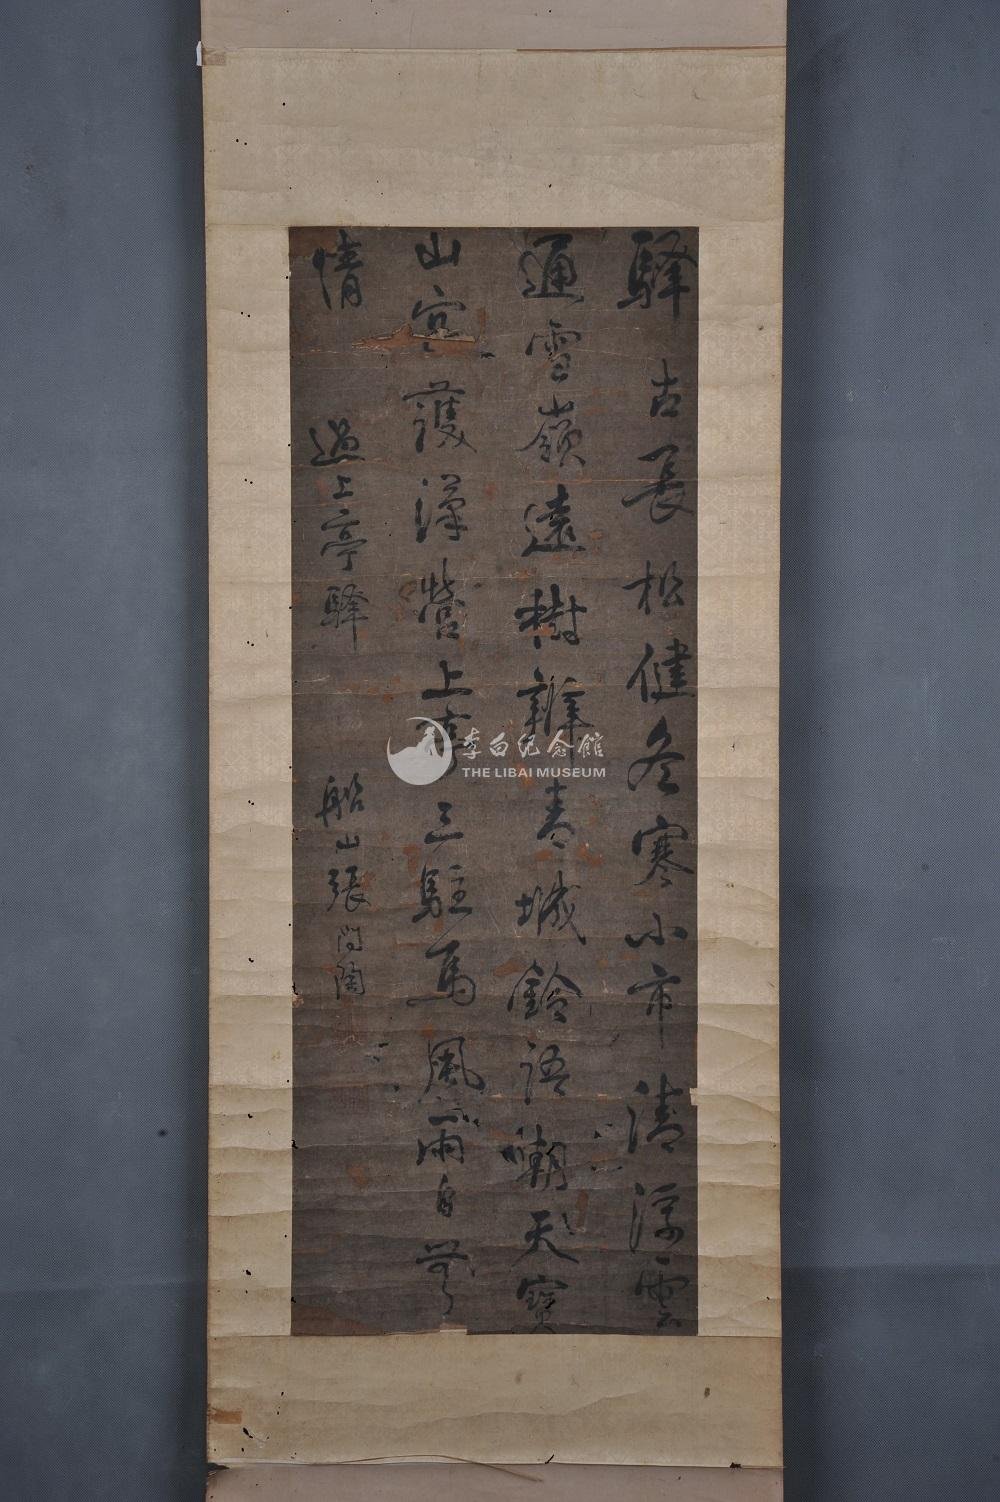 驛古長松健冬寒小市清浮雲
通雪嶺遠樹辨青城鈴語嘲天寶
山容護漢營上亭三駐馬風雨自
情
過上亭驛
船山張問陶
李白纪念馆
THE LIBAI MUSEUM